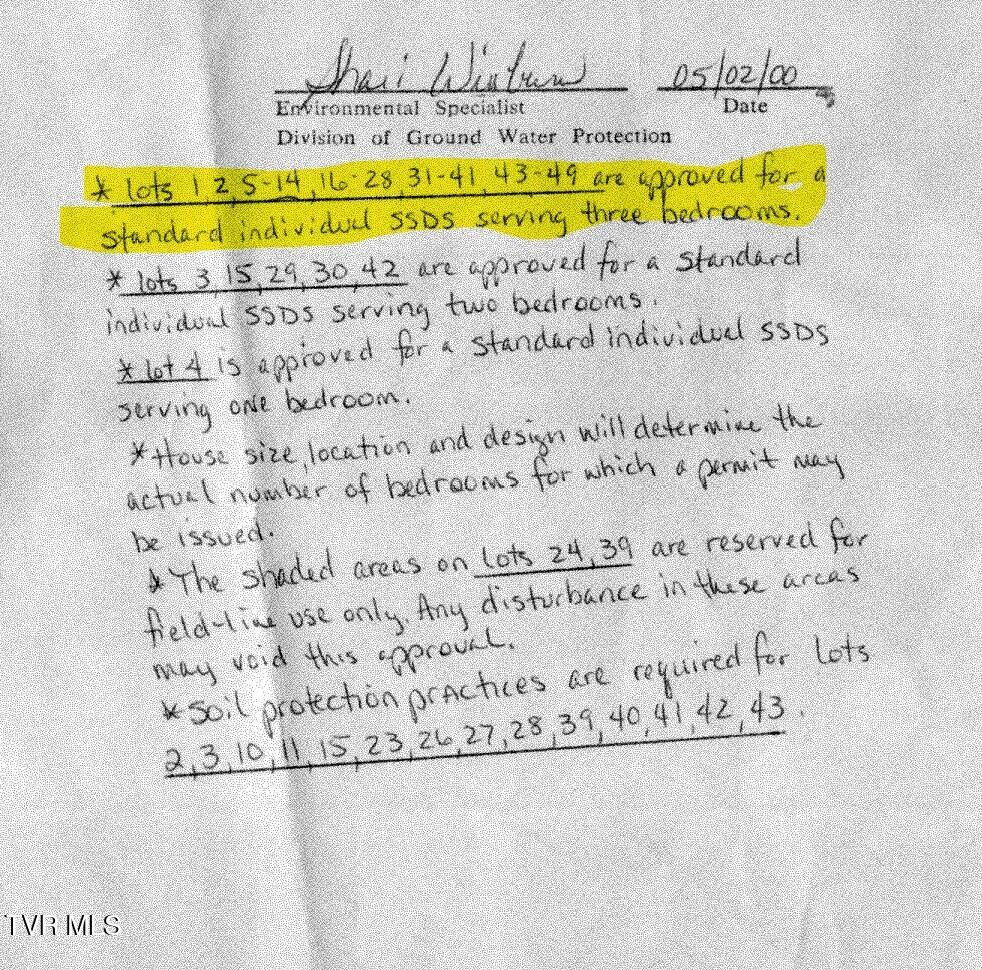 Shari Winburn 05/02/00
Environmental Specialist Date
Division of Ground Water Protection
* lots 1, 2, 5-14, 16-28, 31-41, 43-49 are approved for a
standard individual SSDS serving three bedrooms.
* lots 3, 15, 29, 30, 42 are approved for a standard
individual SSDS serving two bedrooms.
* lot 4 is approved for a standard individual SSDS
serving one bedroom.
* House size, location and design will determine the
actual number of bedrooms for which a permit may
be issued.
* The shaded areas on lots 24, 39 are reserved for
field-line use only. Any disturbance in these areas
may void this approval.
* Soil protection practices are required for lots
2, 3, 10, 11, 15, 23, 26, 27, 28, 39, 40, 41, 42, 43.
TVR MLS